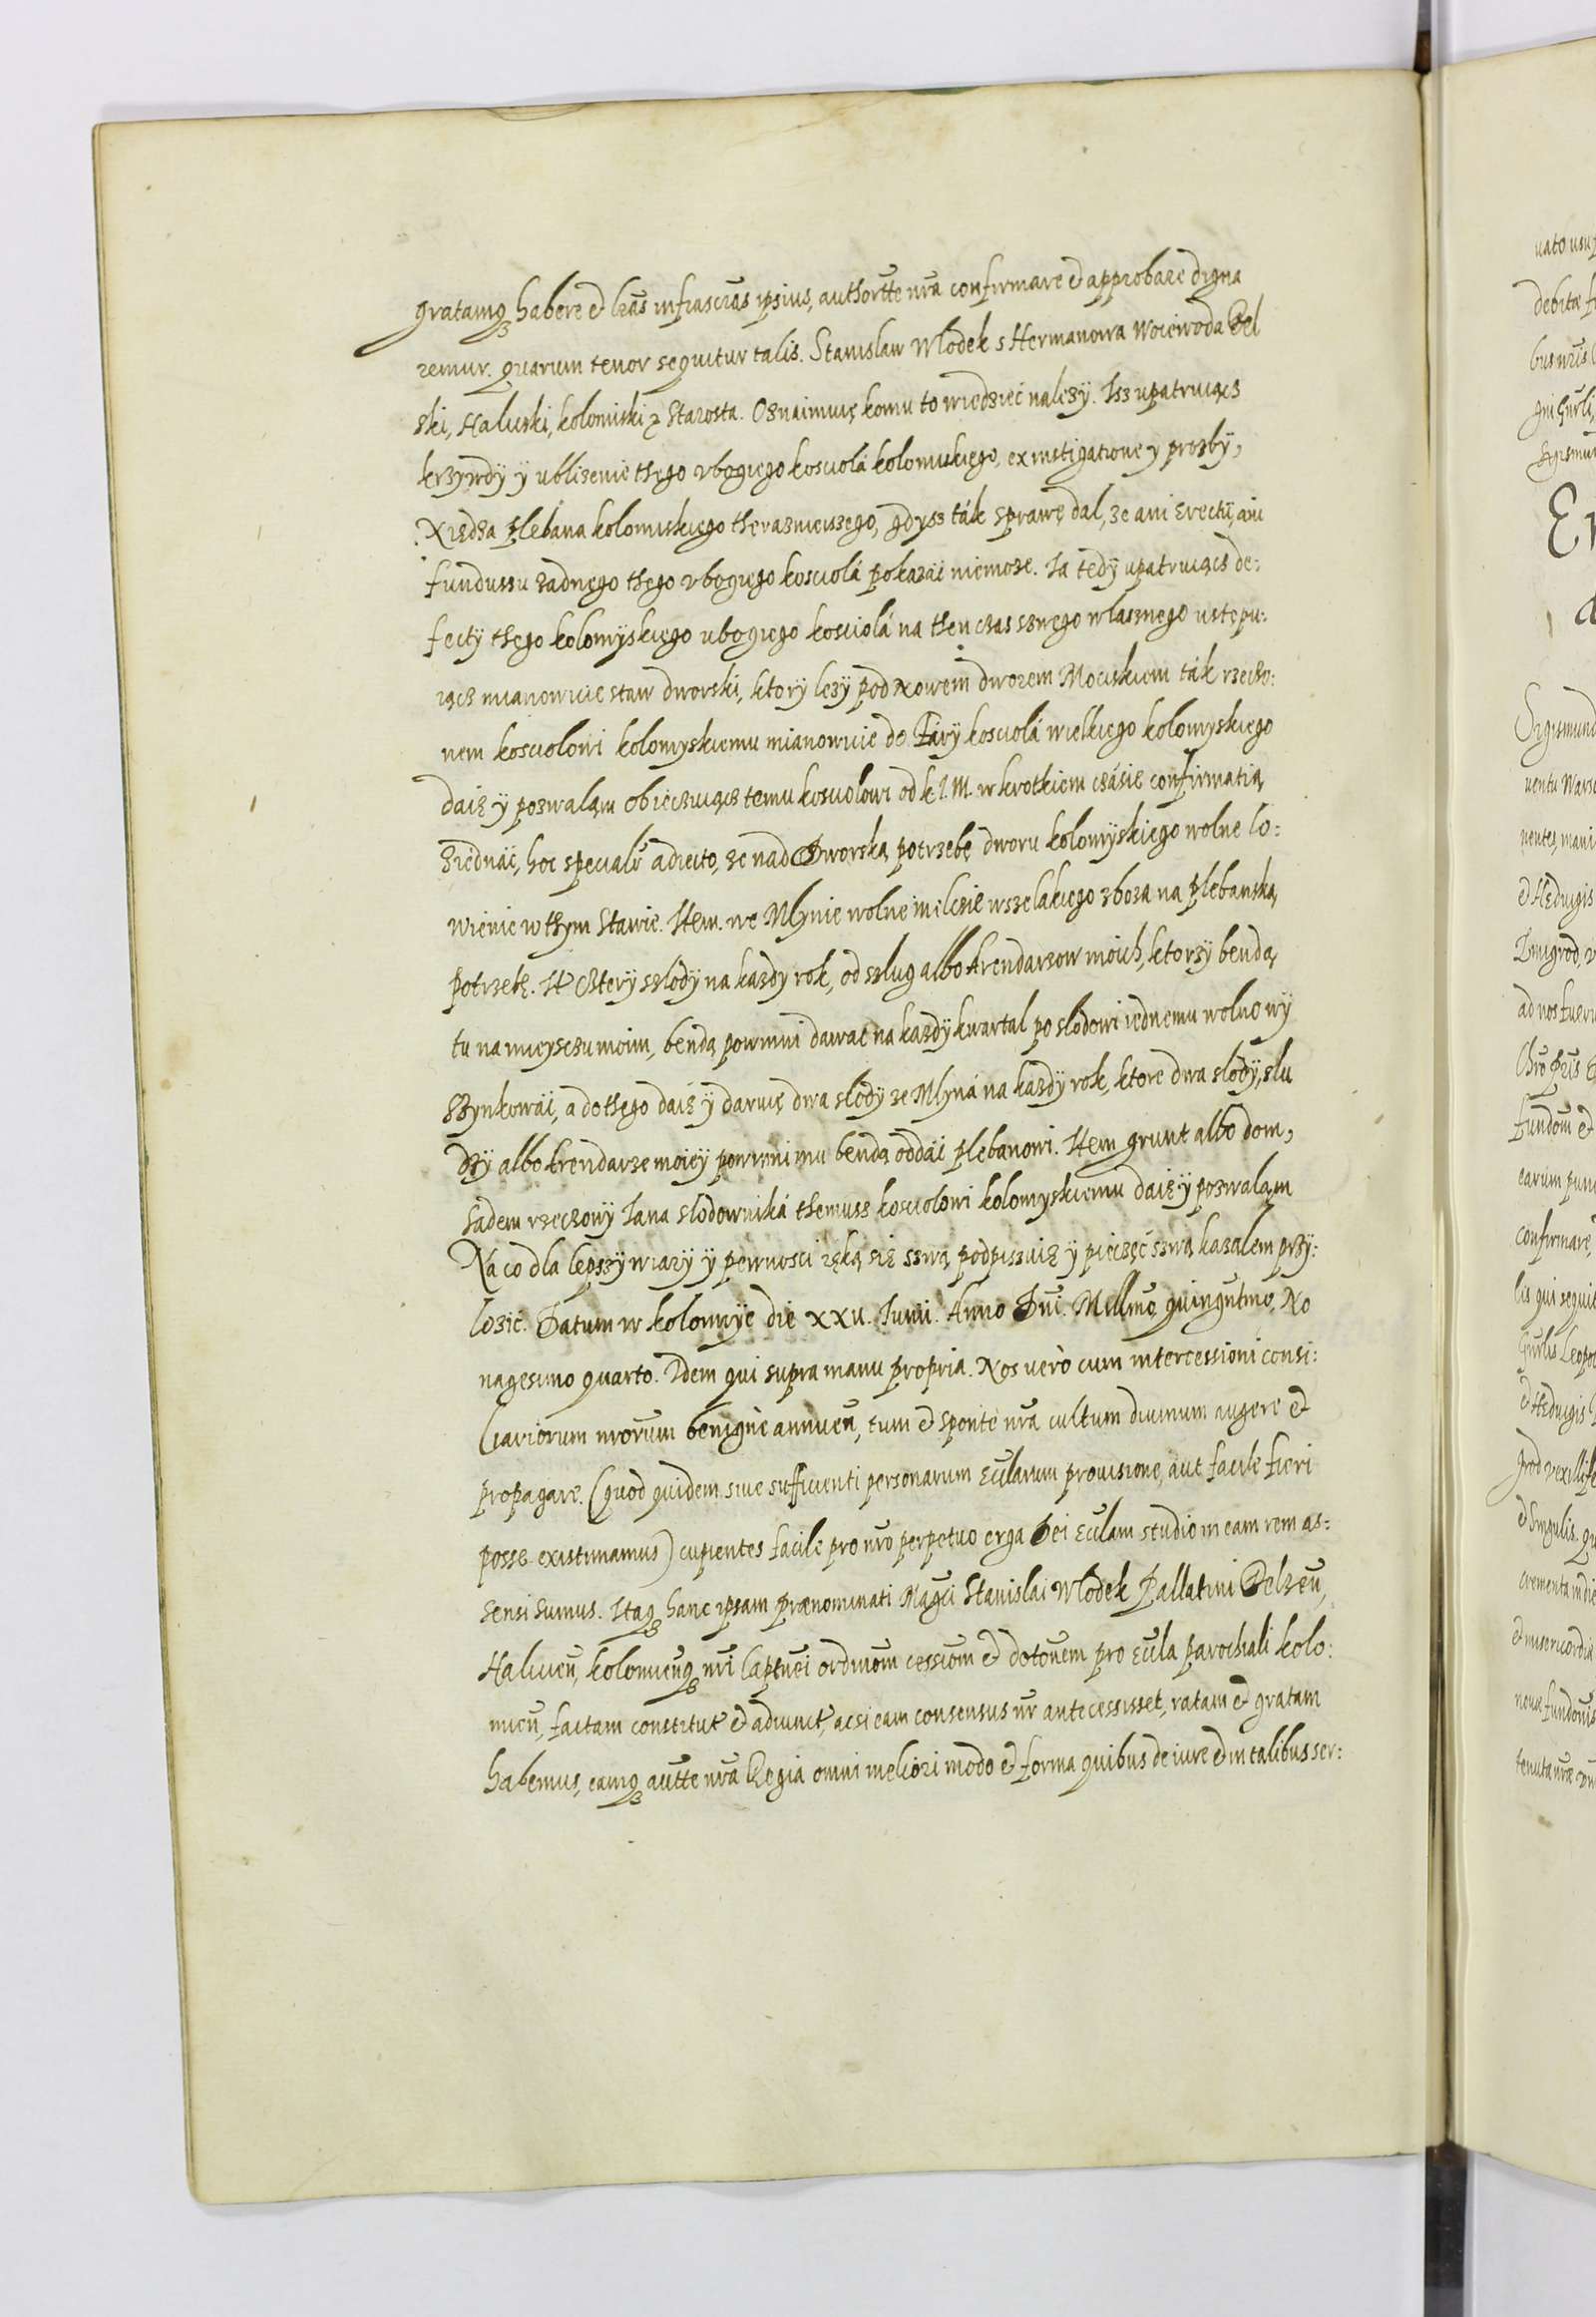 gratamq₃ habere et lrãs infrascrãs ipsius, authortte nrã confirmare et approbare digna
remur. quarum tenor sequitur talis. Stanislaw Wlodek s Hermanowa Woiewoda Bel
ski, Halicski, kolomiski ɀ Starosta. Oznaimuię komu to wiedzieć nalezÿ. Isz upatruiącz
krzywdÿ ÿ ublizenie thego vbogiego kosciolá kolomiskiego, ex instigatione y prozbÿ,
Xiędza plebana kolomiskiego therazneiszego, gdysz ták sprawę dal, ze ani erectÿ, ani
fundussu zadnego thego vbogiego kosciolá pokazáć niemoze. Ia tedÿ upatruiącz de:
fectÿ thego kolomÿskiego ubogiego kosciolá na then czas sznego wlasznego ustępu:
iącz mianowicie staw dworski, ktorÿ lezÿ pod nowem dworem Mociskiem ták rzeczo:
nem kosciolowi kolomyskiemu mianowicie do Fárÿ kosciolá wielkiego kolomyskiego
daię ÿ pozwalam obiecziącz temu kosciolowi od k. I. M. w krotkiem czásie confirmatią
ziednáć, hoc specialr adiecto, ze nad Dworską potrzebę dworu kolomÿskiego wolne lo:
wienie w thym Stawie. Item. we Mlynie wolne mliczie wszelakiego zboza na plebanską
potrzebę. It Cżterÿ szlodÿ na kazdy rok, od szlug albo Arendarzow moich, ktorzÿ bendą
tu na mieyscżu moim, bendą powinni dawac na kazdÿ kwartal po slodowi iednemu wolno wÿ
szynkowáć, a do thego daię ÿ daruię dwa slodÿ ze Mlyná na kazdÿ rok, ktore dwa slodÿ, slu
dzÿ albo Arendarze moieÿ powinni mu bendą oddáć plebanowi. Item grunt albo dom,
sadem rzeczonÿ Iana slodowniká themusz kosciolowi kolomyskiemu daię ÿ pozwalam
Na co dla lepszÿ wiarÿ ÿ pewnosci ręką się szwą podpiszuię ÿ pieczęć szwą kazalem przÿ:
lozić. Datum w kolomÿe die XXV. Iunii. Anno Dni. Millmo quingntmo, No
nagesimo quarto. Idem qui supra manu propria. Nos verò cum intercessioni consi:
liariorum nrorum benignè annuen, tum et sponte nra cultum diuinum augere et
propagare. (quod quidem sine sufficienti personarum Ecclarum prouisione, aut facile fieri
posse existimamus) cupientes facile pro nro perpetuo erga Dei Ecclam studio in eam rem as:
sensi sumus. Itaq₃ hanc ipsam prænominati Magci Stanislai Wlodek Pallatini Belzen,
Halicien, kolomienq₃ nri Captnei ordinom cessiom et dotonem pro eccla parochiali kolo:
mien, factam constitut et adiunct, acsi eam consensus nr antecessisset, ratam et gratam
habemus, eamq₃ autte nra Regia omni meliori modo et forma quibus de iure et in talibus ser: